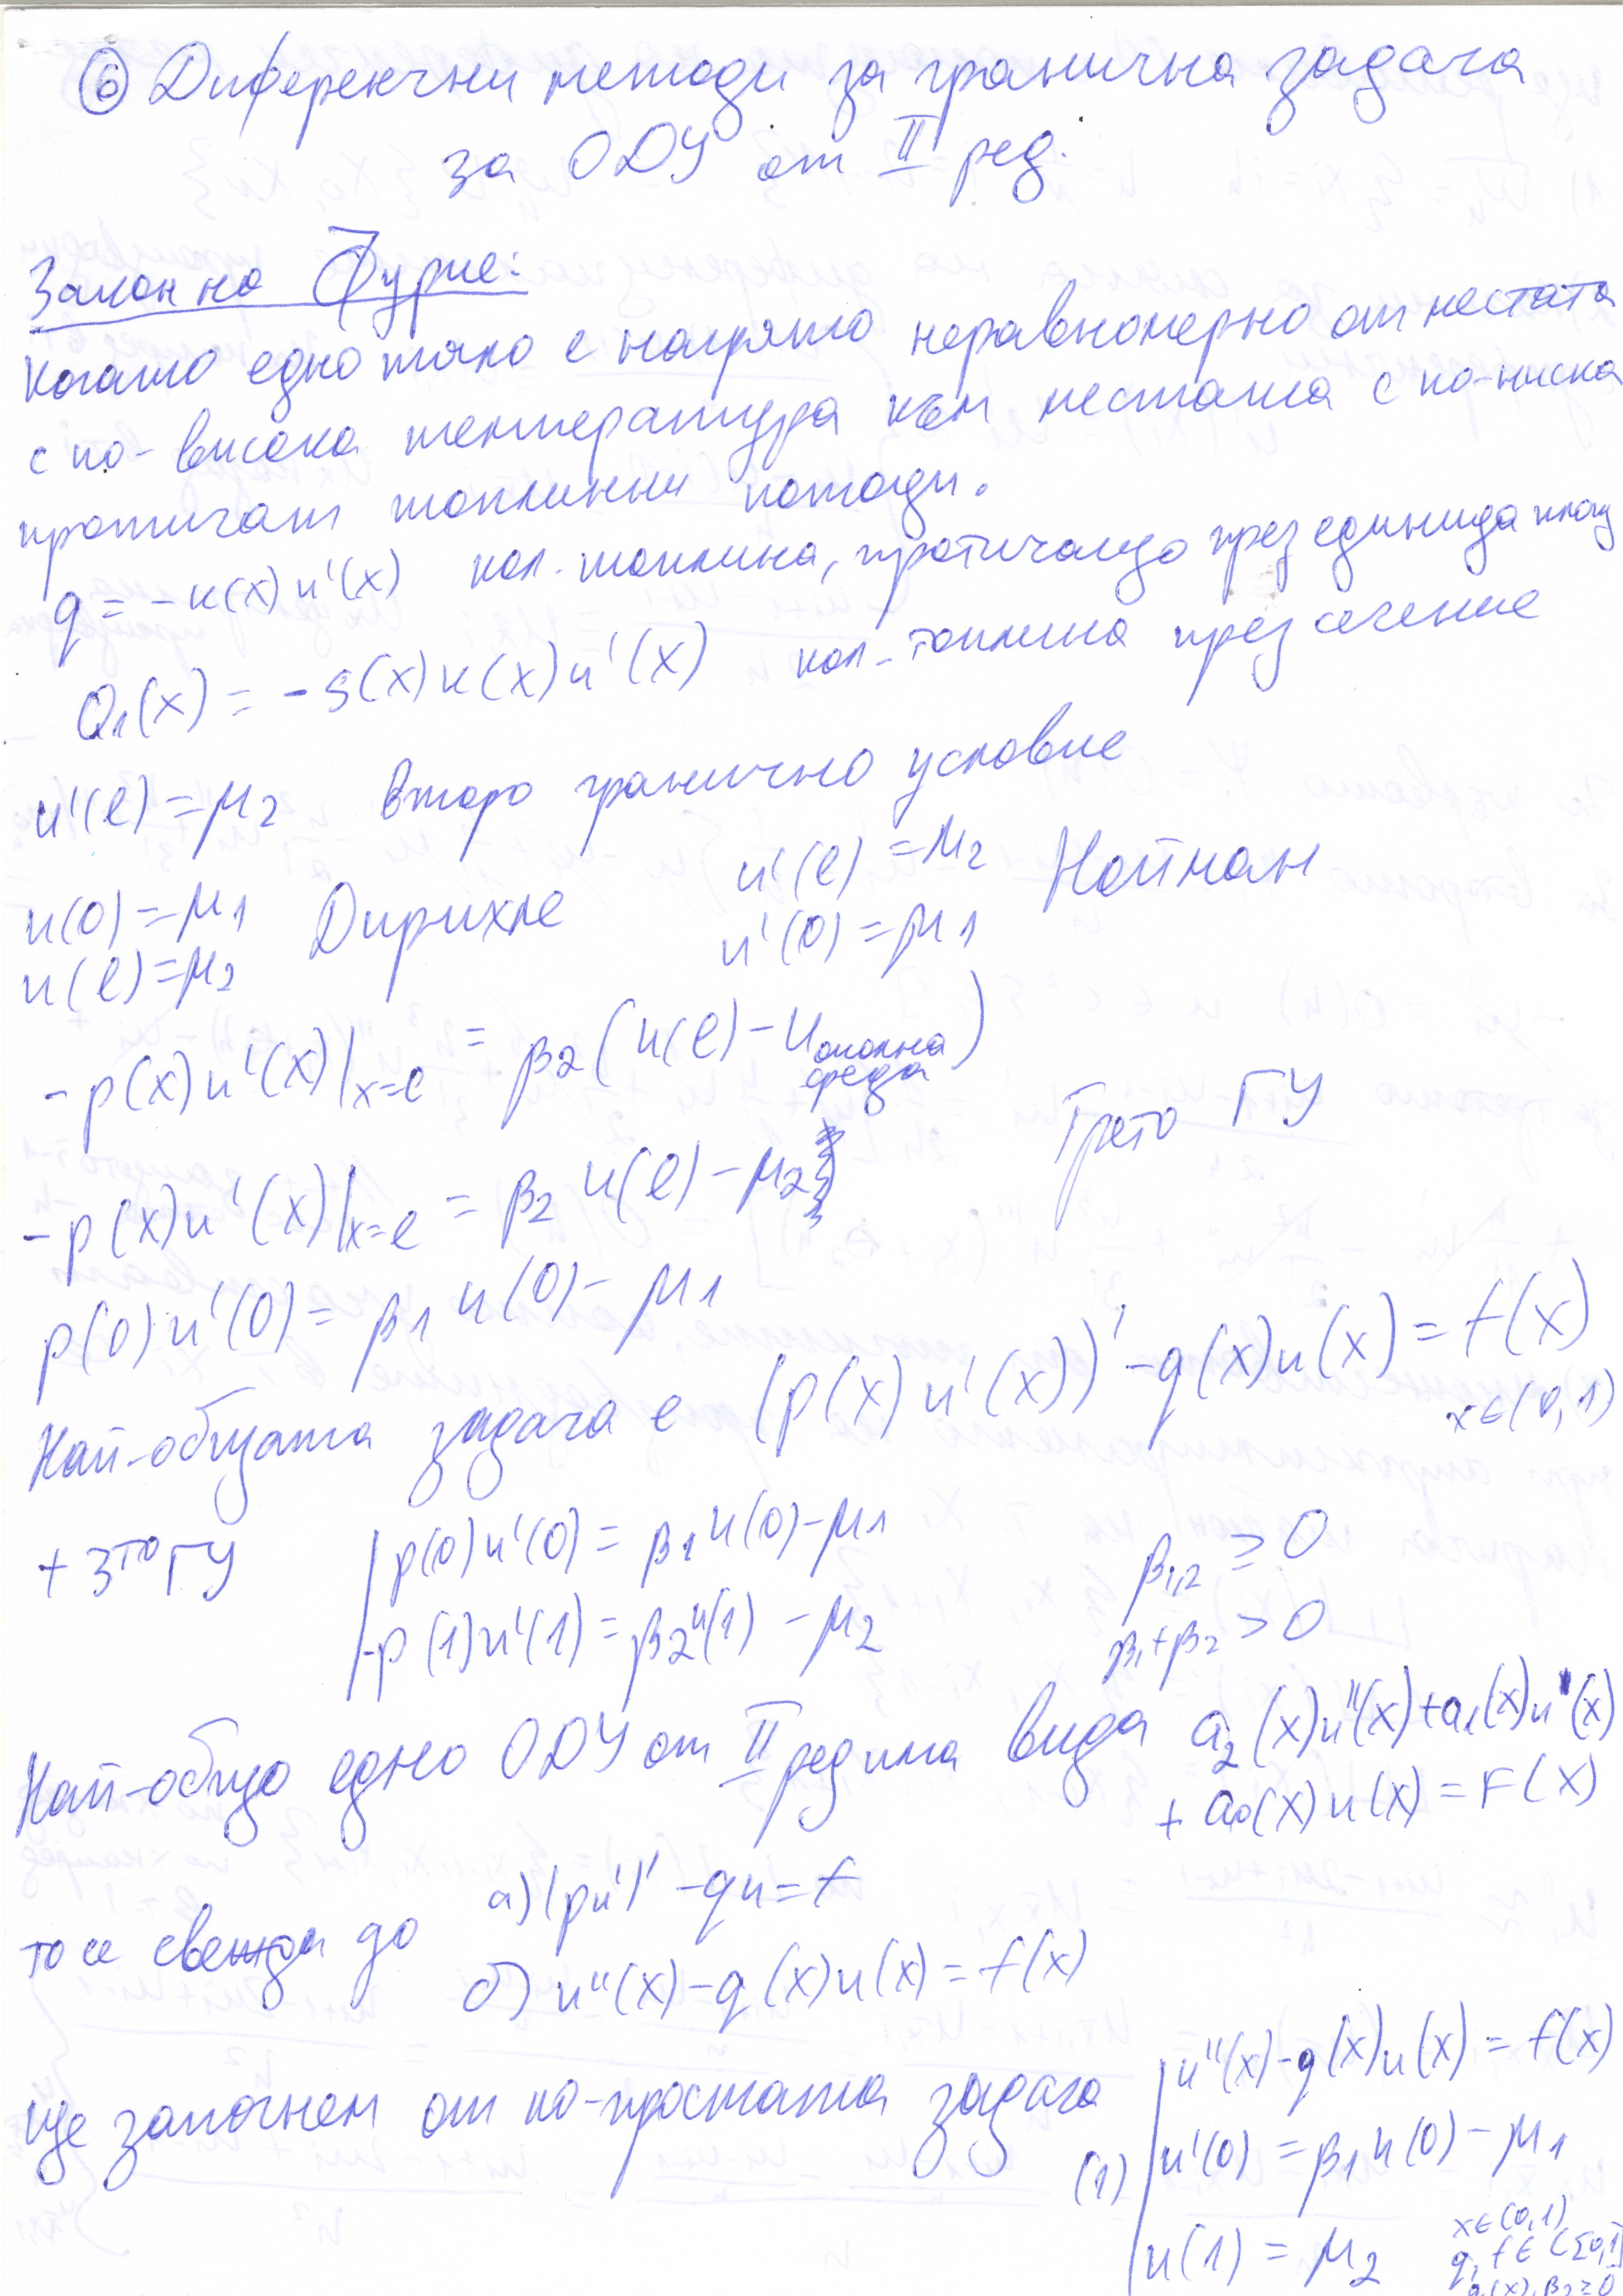 ⑥ Диференчни методи за гранична задача
за ОДУ от II ред.
Закон на Фурие:
Когато едно тяло е нагрято неравномерно от местата
с по-висока температура към местата с по-ниска
протичат топлинни потоци.
q = -k(x)u'(x) кол. топлина, протичащо през единица площ
Q₁(x) = -S(x)k(x)u'(x) кол. топлина през сечение
u'(l) = μ₂ второ гранично условие
u(0) = μ₁ Дирихле u'(l) = μ₂ Нойман
u(l) = μ₂ u'(0) = μ₁
-p(x)u'(x)|x=l = β₂(u(l) - u околна среда)
Трето ГУ
-p(x)u'(x)|x=l = β₂ u(l) - μ₂
p(0)u'(0) = β₁ u(0) - μ₁
Най-общата задача е (p(x)u'(x))' - q(x)u(x) = f(x)
x∈(0,1)
+ 3то ГУ | p(0)u'(0) = β₁u(0) - μ₁ β₁,₂ ≥ 0
| -p(1)u'(1) = β₂u(1) - μ₂ β₁+β₂ > 0
Най-общо едно ОДУ от II ред има вида a₂(x)u''(x) + a₁(x)u'(x)
+ a₀(x)u(x) = F(x)
то се свежда до а) (pu')' - qu = f
б) u''(x) - q(x)u(x) = f(x)
Ще започнем от по-простата задача
(1) | u''(x) - q(x)u(x) = f(x)
| u'(0) = β₁u(0) - μ₁
| u(1) = μ₂ x∈(0,1)
q, f ∈ C[0,1]